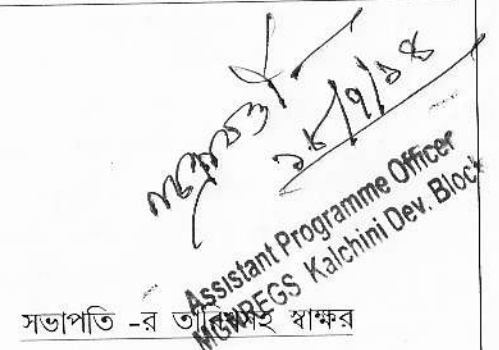 ১৮/৭/১৪
Assistant Programme Officer
MGNREGS Kalchini Dev. Block
সভাপতি -র তারিখসহ স্বাক্ষর